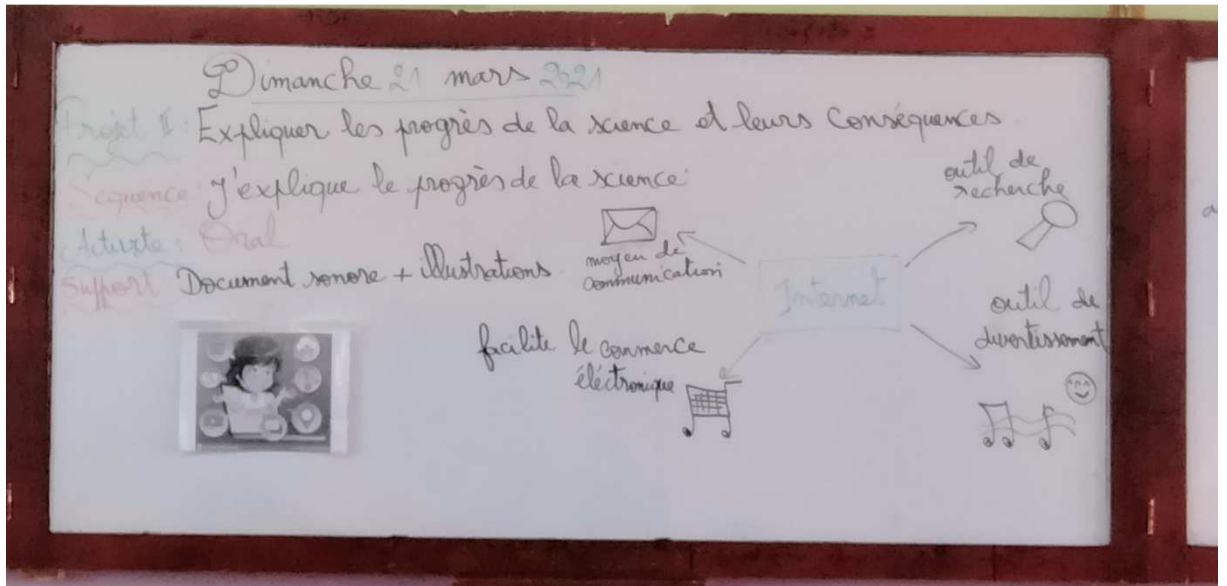 Dimanche 21 mars 2021
Projet II: Expliquer les progrès de la science et leurs conséquences
Séquence: J'explique le progrès de la science
Activité: Oral
Support Document sonore + illustrations
moyen de
communication
outil de
recherche
Internet
outil de
divertissement
facilite le commerce
éléctronique